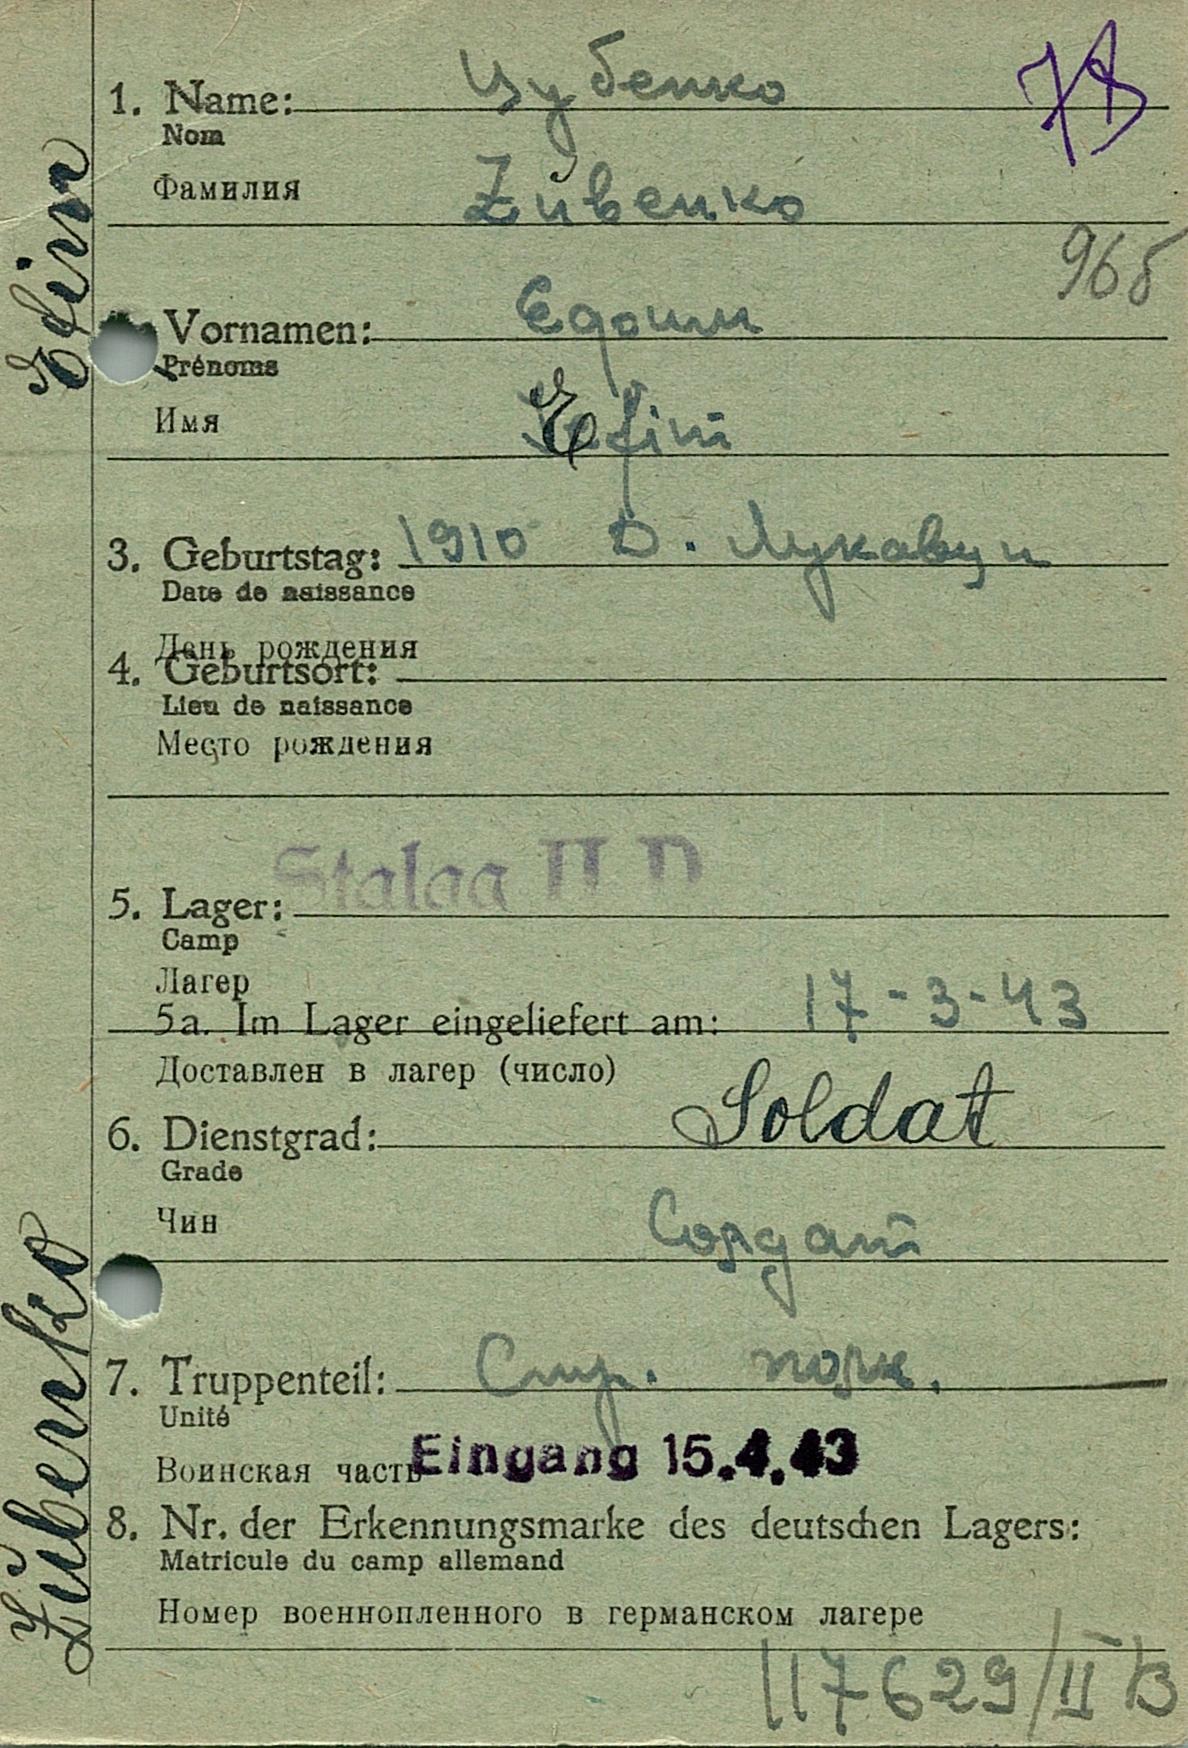 1. Name: Цубенко
Nom
Фамилия Zübenko
78
965
Vornamen: Ефим
Prénoms
Имя Efim
3. Geburtstag: 1910 D. Лукавци
Date de naissance
День рождения
4. Geburtsort:
Lieu de naissance
Место рождения
5. Lager: Stalag II D
Camp
Лагер
5a. Im Lager eingeliefert am: 17-3-43
Доставлен в лагер (число)
6. Dienstgrad: Soldat
Grade
Чин Солдат
7. Truppenteil: Стр. полк.
Unité
Воинская часть Eingang 15.4.43
8. Nr. der Erkennungsmarke des deutschen Lagers:
Matricule du camp allemand
Номер военнопленного в германском лагере
117629/II B
Zübenko Efim